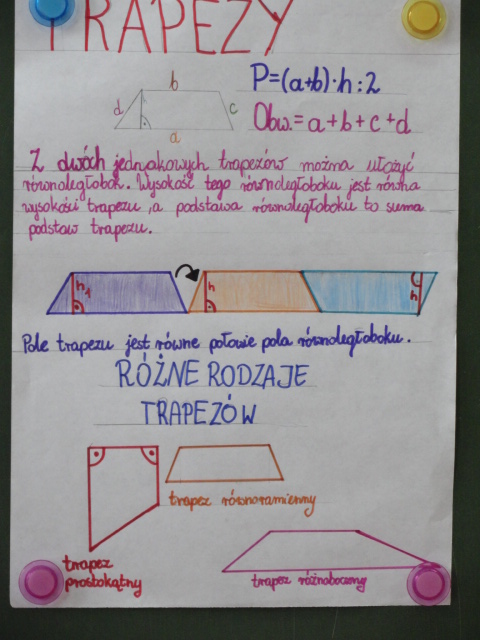 TRAPEZY
b
P=(a+b)·h:2
d
c
Obw.=a+b+c+d
a
Z dwóch jednakowych trapezów można ułożyć
równoległobok. Wysokość tego równoległoboku jest równa
wysokości trapezu, a podstawa równoległoboku to suma
podstaw trapezu.
h1 h h
Pole trapezu jest równe połowie pola równoległoboku.
RÓŻNE RODZAJE
TRAPEZÓW
trapez równoramienny
trapez
prostokątny
trapez różnoboczny